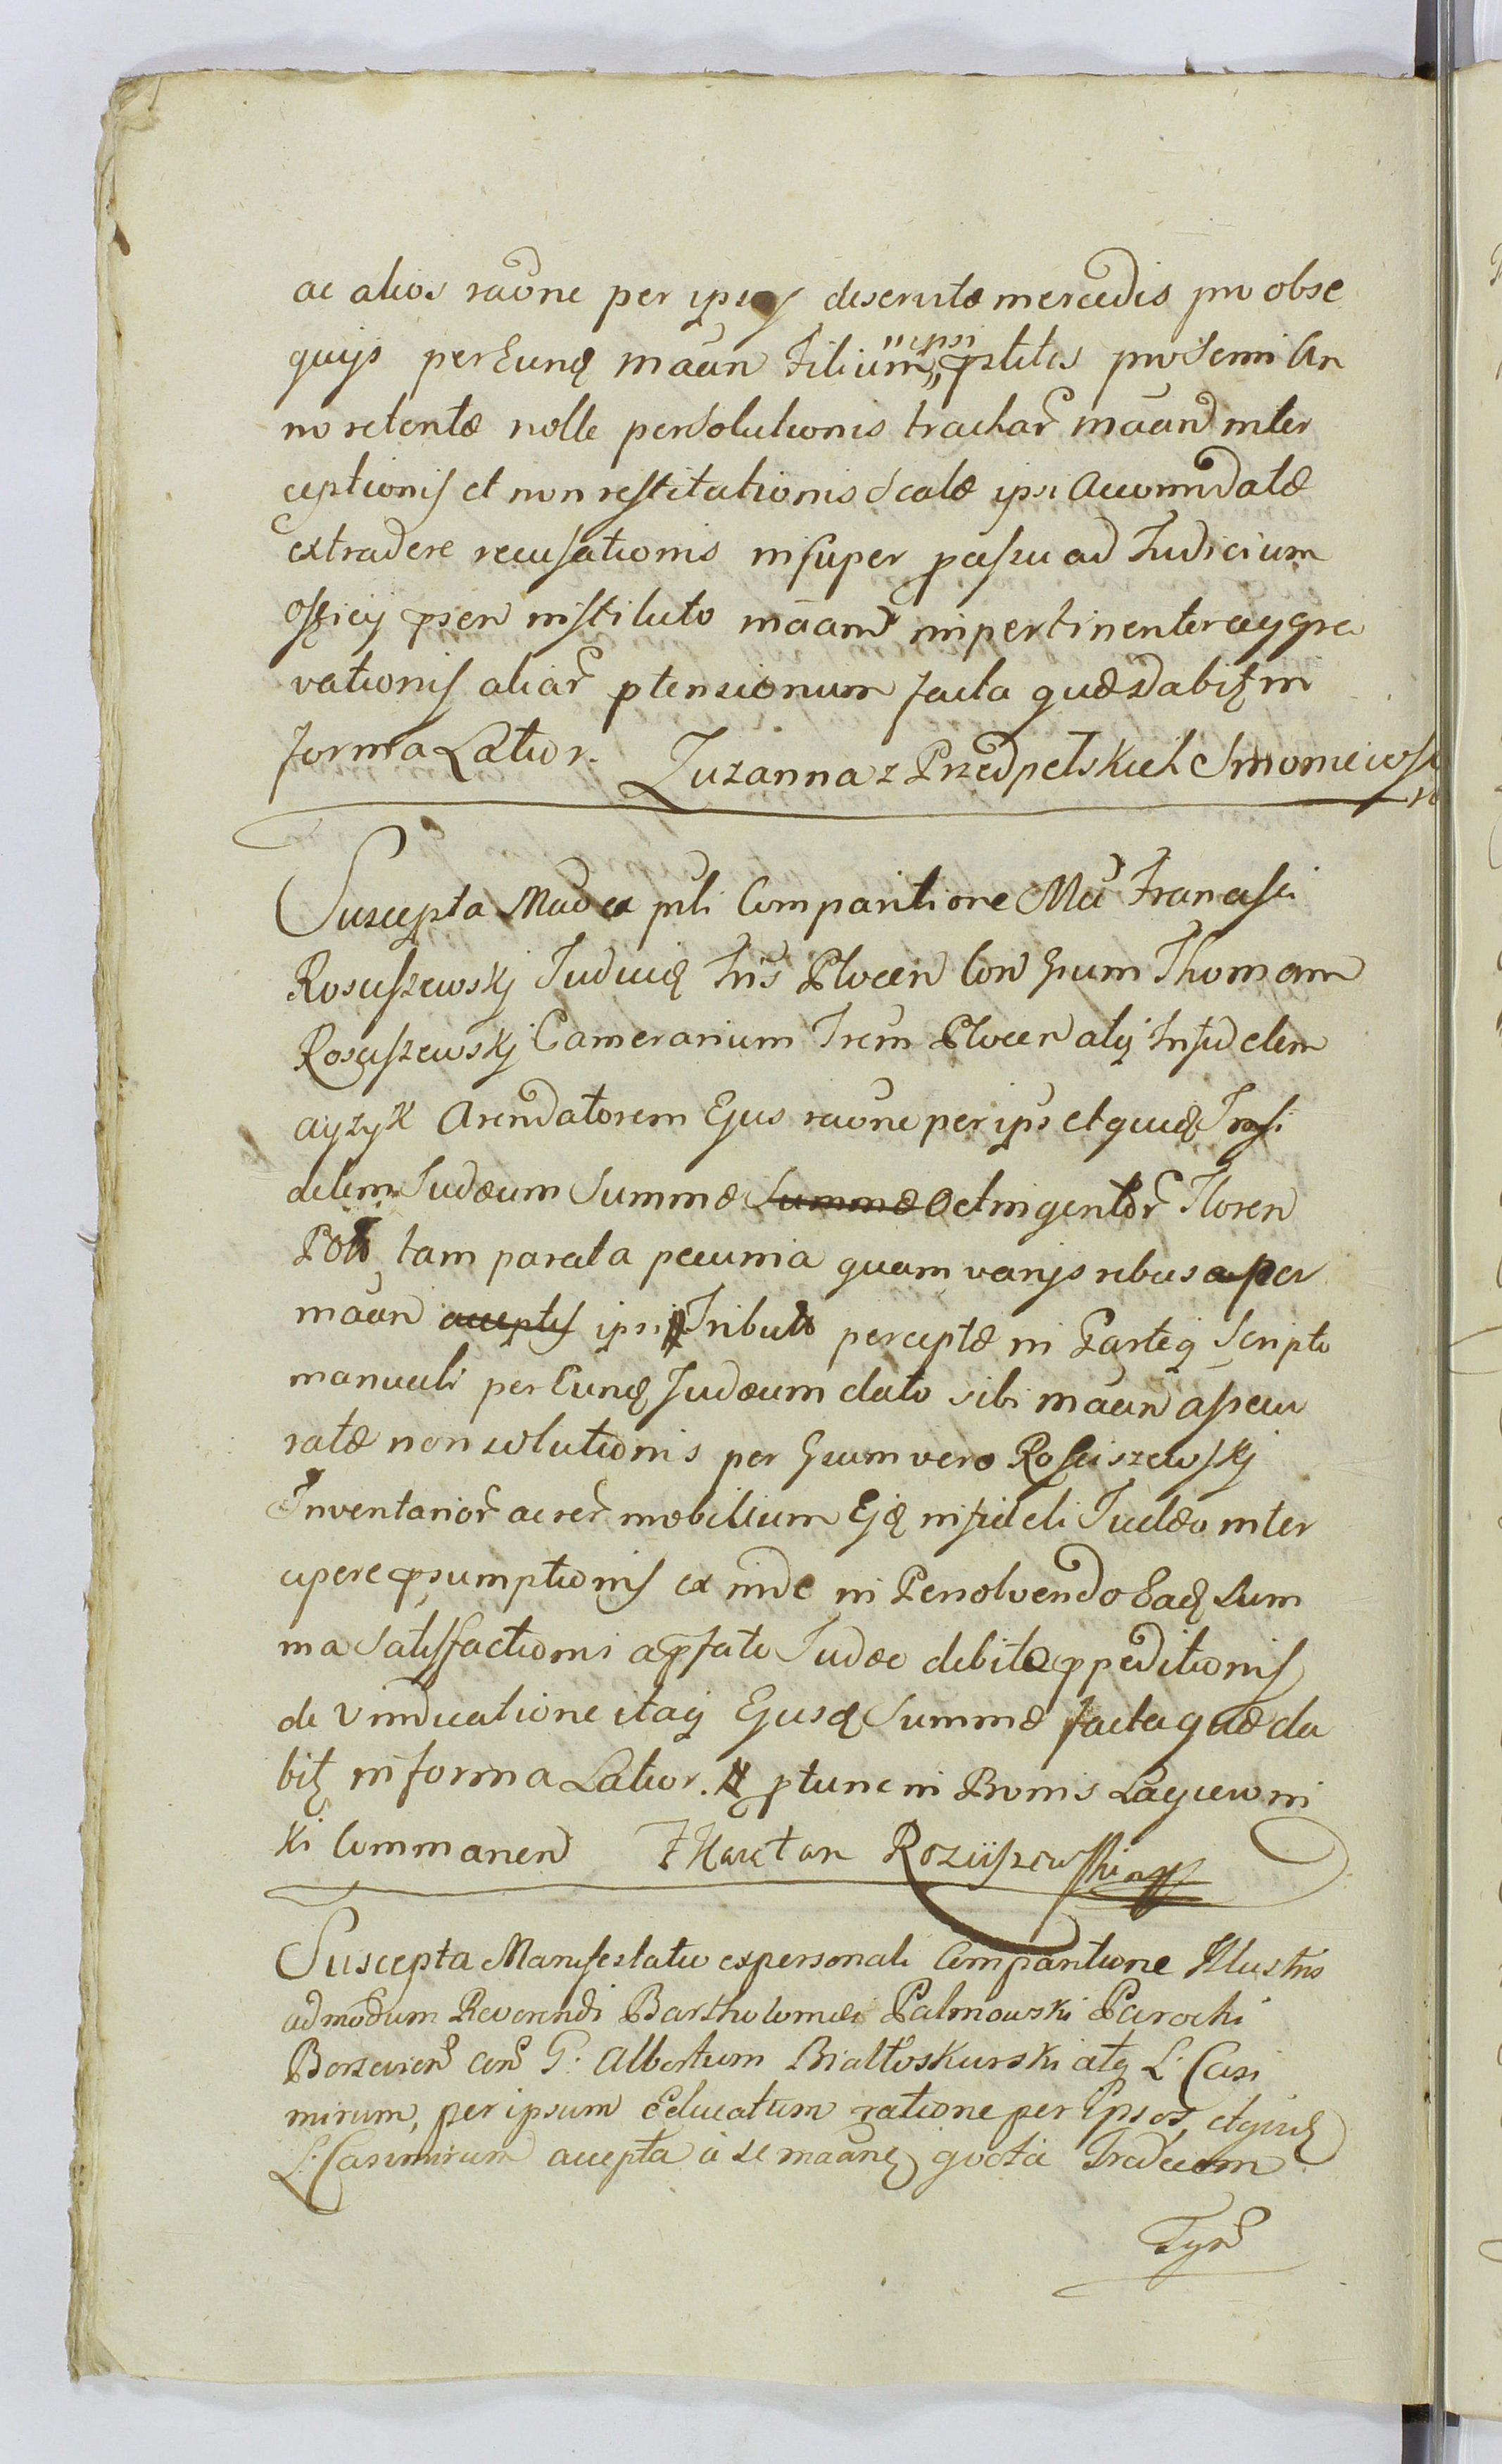 ac alios raõne per ipsos deservitæ mercedis pro obse
quijs per Eunq maan Filium ipsi pstitis pro Semi An
no retentæ nolle persolutionis tractar maan inter
ceptionis et non restitutionis Scalæ ipsi Accomodatæ
extradere recusationis insuper passu ad Judicium
Officij psen instituto maan impertinenter aggra
vationis aliar ptensionum facta quæ dabit in
forma Latior. Zuzanna z Przedpelskich Smoniews
Suscepta Mado ex psli Comparitione Mci Francisci
Rosciszewskj Judicis Tris Plocen Con Grum Thomam
Rosciszewskj Camerarium Trem Plocen atq Infidelem
ayzyk Arendatorem Ejus raone per ips et quidq Infi
delem Judæum Summæ Summæ Octingentor Floren
Pol tam parata pecunia quam varijs rebus a per
maan acceptis ipsi Tributo perceptæ in Parteq Scripto
manuali per Eunq Judæum dato sibi maan assecu
ratæ non solutionis per Grum vero Rosciszewskj
Inventarior ac rer mobilium Ejq infideli Judæo inter
cipere psumptionis ex inde in Persolvendo Eaq Sum
ma Satisfactioni a pfato Judæo debitæ ppeditionis
de Vindicatione itaq Ejusq Summæ facta quæ da
bit in forma Latior. ptunc in Bonis Lagiewni
ki Commanen F Kaietan Rozciszewski
Suscepta Manifestatio ex personali Comparitione Illustris
admodum Reverendi Bartholomæi Palmowski Parochi
Borzevien con G. Albertum Białłoskurski atq L. Casi
mirum, per ipsum Educatum ratione per Ipsos, et quidq
L. Casimirum accepta à se maane gvota Tradecem
Tyn